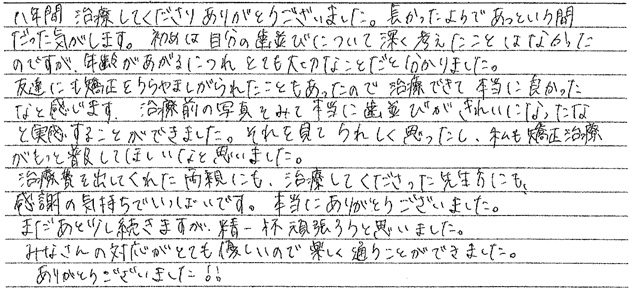 八年間 治療してくださりありがとうございました。長かったようであっという間
だった気がします。初めは自分の歯並びについて深く考えたことはなかった
のですが、年齢があがるにつれ とても大切なことだと分かりました。
友達にも矯正をうらやましがられたこともあったので 治療できて本当に良かった
なと感じます。 治療前の写真をみて本当に歯並びがきれいになったな
と実感することができました。それを見てうれしく思ったし、私も矯正治療
がもっと普及してほしいなと思いました。
治療費を出してくれた両親にも、治療してくださった先生方にも、
感謝の気持ちでいっぱいです。本当にありがとうございました。
まだあと少し続きますが、精一杯頑張ろうと思いました。
みなさんの対応がとても優しいので楽しく通うことができました。
ありがとうございました!!